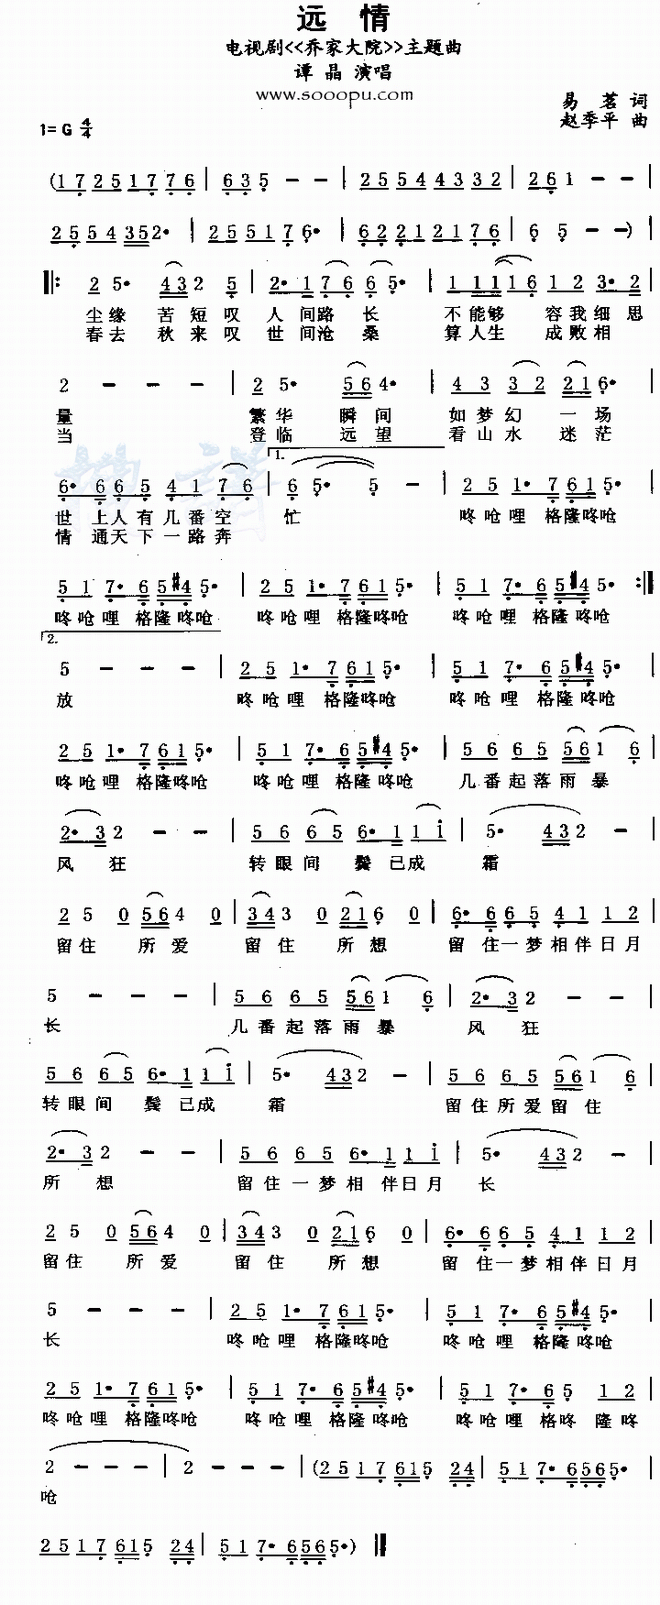 远 情
电视剧<<乔家大院>>主题曲
谭 晶 演唱
www.sooopu.com
易 茗 词
1=G 4/4
赵季平 曲
(1 7 2 5 1 7 7 6 | 6 3 5 - - | 2 5 5 4 4 3 3 2 | 2 6 1 - - |
2 5 5 4 3 5 2· | 2 5 5 1 7 6· | 6 2 2 1 2 1 7 6 | 6 5 - - )
‖: 2 5· 4 3 2 5 | 2· 1 7 6 6 5· | 1 1 1 1 6 1 2 3· 2
尘缘 苦 短 叹 人 间路 长 不能够 容我细思
春去 秋 来 叹 世 间沧 桑 算人生 成败相
2 - - - | 2 5· 5 6 4· | 4 3 3 2 2 1 6· |
量 繁华 瞬 间 如梦幻 一场
当 登临 远 望 看山水 迷茫
1.
6· 6 6 5 4 1 7 6 | 6 5· 5 - | 2 5 1· 7 6 1 5· |
世 上人有几番空 忙 咚呛哩 格隆咚呛
情 通天下一路奔
5 1 7· 6 5 #4 5· | 2 5 1· 7 6 1 5· | 5 1 7· 6 5 #4 5· :‖
咚呛哩 格隆咚呛 咚呛哩 格隆咚呛 咚呛哩 格隆咚呛
2.
5 - - - | 2 5 1· 7 6 1 5· | 5 1 7· 6 5 #4 5· |
放 咚呛哩 格隆咚呛 咚呛哩 格隆咚呛
2 5 1· 7 6 1 5· | 5 1 7· 6 5 #4 5· | 5 6 6 5 5 6 1 6 |
咚呛哩 格隆咚呛 咚呛哩 格隆咚呛 几番起落雨 暴
2· 3 2 - - | 5 6 6 5 6· 1 1 i | 5· 4 3 2 - |
风 狂 转眼间 鬓 已成 霜
2 5 0 5 6 4 0 | 3 4 3 0 2 1 6 0 | 6· 6 6 5 4 1 1 2 |
留住 所 爱 留 住 所 想 留 住一梦相伴日月
5 - - - | 5 6 6 5 5 6 1 6 | 2· 3 2 - - |
长 几番起落雨 暴 风 狂
5 6 6 5 6· 1 1 i | 5· 4 3 2 - | 5 6 6 5 5 6 1 6 |
转眼间 鬓 已成 霜 留住所爱留 住
2· 3 2 - - | 5 6 6 5 6· 1 1 i | 5· 4 3 2 - |
所 想 留住一梦相 伴日月 长
2 5 0 5 6 4 0 | 3 4 3 0 2 1 6 0 | 6· 6 6 5 4 1 1 2 |
留住 所 爱 留 住 所 想 留 住一梦相伴日月
5 - - - | 2 5 1· 7 6 1 5· | 5 1 7· 6 5 #4 5· |
长 咚呛哩 格隆咚呛 咚呛哩 格隆咚呛
2 5 1· 7 6 1 5· | 5 1 7· 6 5 #4 5· | 5 1 7· 6 5 1 2 |
咚呛哩 格隆咚呛 咚呛哩 格隆咚呛 咚呛哩 格咚 隆咚
2 - - - | 2 - - - | (2 5 1 7 6 1 5 2 4 | 5 1 7· 6 5 6 5· |
呛
2 5 1 7 6 1 5 2 4 | 5 1 7· 6 5 6 5· ) ‖